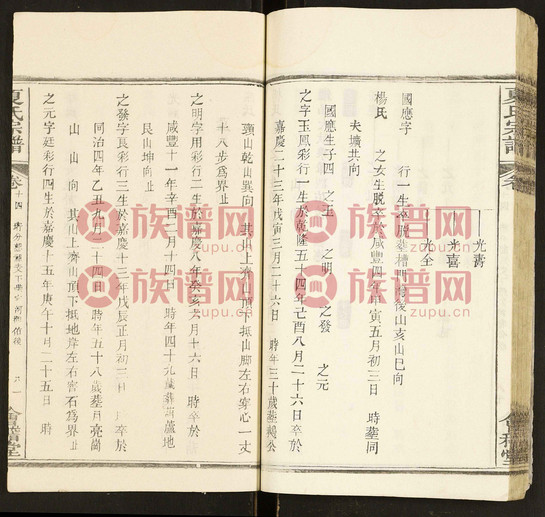 光壽
光喜
光全
國應字 行一生卒脫葬槽門灣後山亥山巳向
楊氏 之女生脫卒於咸豐四年甲寅五月初三日 時葬同
夫壙共向
國應生子四 之玉 之明 之發 之元
之字玉鳳彩行一生於乾隆五十四年己酉八月二十六日卒於
嘉慶二十三年戊寅三月二十六日 時年三十歲葬鵝公
頭山乾山巽向 其山上齊山頂下抵山脚左右穿心一丈
十八步爲界止
之明字用彩行二生於嘉慶八年癸亥 月十六日 時卒於
咸豐十一年辛酉二月十四日 時年 十九歲葬葫蘆地
艮山坤向止
之發字良彩行三生於嘉慶十三年戊辰正月初三 卒於
同治四年乙丑九月二十四日 時年五十八歲葬月亮崗
山 山 向 其山上齊山頂下抵地岸左右窖石爲界止
之元字廷彩行四生於嘉慶十五年庚午十月二十五日 時
夏氏宗譜
卷十四
會稽堂
族谱网
zupu.cn